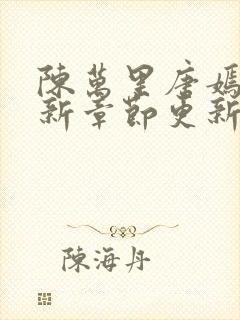 陳萬里唐嫣
新章節更新
陳海丹